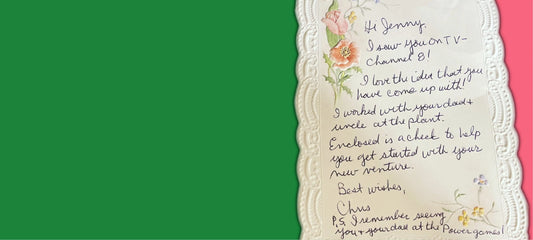 Hi Jenny,
I saw you on TV-
Channel 8!
I love the idea that you
have come up with!
I worked with your dad +
uncle at the plant.
Enclosed is a check to help
you get started with your
new venture.
Best wishes,
Chris
P.S. I remember seeing
you + your dad at the Power games!